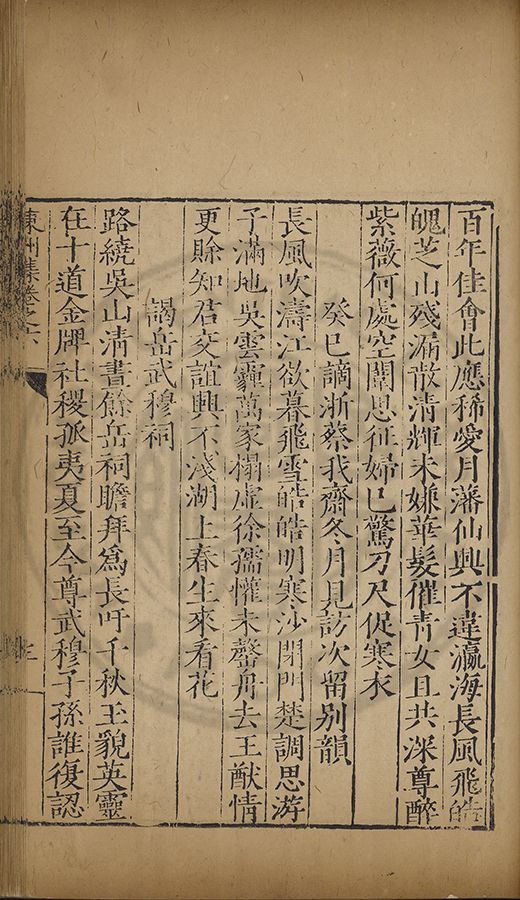 百年佳會此應稀愛月藩仙興不違瀛海長風飛皓
魄芝山殘漏散清輝未嫌華髮催青女且共深尊醉
紫薇何處空閨思征婦已驚刀尺促寒衣
癸巳謫浙蔡我齋冬月見訪次留别韻
長風吹濤江欲暮飛雪皓皓明寒沙閉門楚調思游
子滿地吳雲霾萬家榻虛徐孺懽未罄舟去王猷情
更賒知君交誼興不淺湖上春生來看花
謁岳武穆祠
路繞吳山清晝餘岳祠瞻拜為長吁千秋王貌英靈
在十道金牌社稷孤夷夏至今尊武穆子孫誰復認
東洲集卷之六